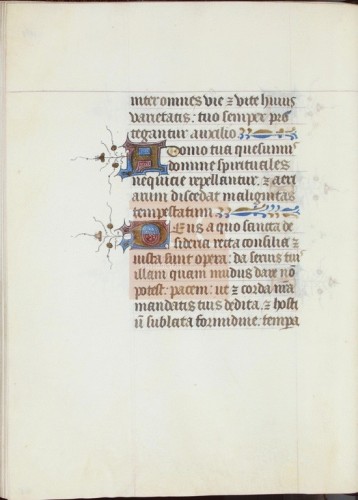 inter omnes vie ⁊ vite huius
varietatis: tuo semper pro
tegantur auxilio
A domo tua quesumus
domine spirituales
nequicie repellantur. ⁊ aeri
arum discedat malignitas
tempestatum
Deus a quo sancta de
sideria recta consilia ⁊
iusta sunt opera: da seruis tuis
illam quam mūdus dare nō
potest. pacem: ut ⁊ corda nr̄a
mandatis tuis dedita. ⁊ hosti
ū sublata formidine. tempo